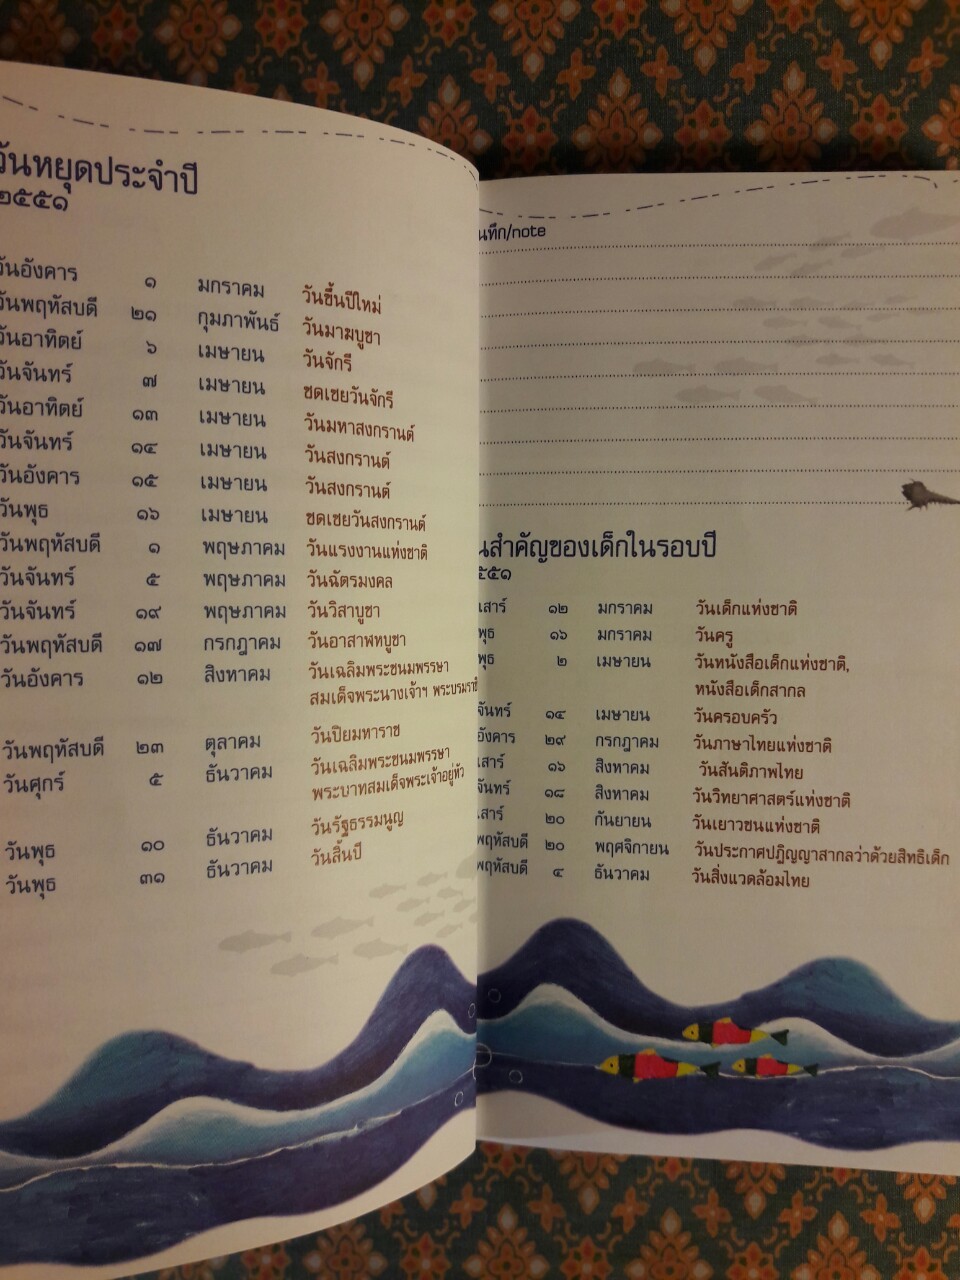 วันหยุดประจำปี
๒๕๕๑
วันอังคาร ๑ มกราคม วันขึ้นปีใหม่
วันพฤหัสบดี ๒๑ กุมภาพันธ์ วันมาฆบูชา
วันอาทิตย์ ๖ เมษายน วันจักรี
วันจันทร์ ๗ เมษายน ชดเชยวันจักรี
วันอาทิตย์ ๑๓ เมษายน วันมหาสงกรานต์
วันจันทร์ ๑๔ เมษายน วันสงกรานต์
วันอังคาร ๑๕ เมษายน วันสงกรานต์
วันพุธ ๑๖ เมษายน ชดเชยวันสงกรานต์
วันพฤหัสบดี ๑ พฤษภาคม วันแรงงานแห่งชาติ
วันจันทร์ ๕ พฤษภาคม วันฉัตรมงคล
วันจันทร์ ๑๙ พฤษภาคม วันวิสาบูชา
วันพฤหัสบดี ๑๗ กรกฎาคม วันอาสาฬหบูชา
วันอังคาร ๑๒ สิงหาคม วันเฉลิมพระชนมพรรษา
สมเด็จพระนางเจ้าฯ พระบรมรา
วันพฤหัสบดี ๒๓ ตุลาคม วันปิยมหาราช
วันศุกร์ ๕ ธันวาคม วันเฉลิมพระชนมพรรษา
พระบาทสมเด็จพระเจ้าอยู่หัว
วันพุธ ๑๐ ธันวาคม วันรัฐธรรมนูญ
วันพุธ ๓๑ ธันวาคม วันสิ้นปี
นทึก/note
นสำคัญของเด็กในรอบปี
๕๕๑
เสาร์ ๑๒ มกราคม วันเด็กแห่งชาติ
พุธ ๑๖ มกราคม วันครู
พุธ ๒ เมษายน วันหนังสือเด็กแห่งชาติ,
หนังสือเด็กสากล
จันทร์ ๑๔ เมษายน วันครอบครัว
อังคาร ๒๙ กรกฎาคม วันภาษาไทยแห่งชาติ
เสาร์ ๑๖ สิงหาคม วันสันติภาพไทย
จันทร์ ๑๘ สิงหาคม วันวิทยาศาสตร์แห่งชาติ
เสาร์ ๒๐ กันยายน วันเยาวชนแห่งชาติ
พฤหัสบดี ๒๐ พฤศจิกายน วันประกาศปฏิญญาสากลว่าด้วยสิทธิเด็ก
พฤหัสบดี ๔ ธันวาคม วันสิ่งแวดล้อมไทย